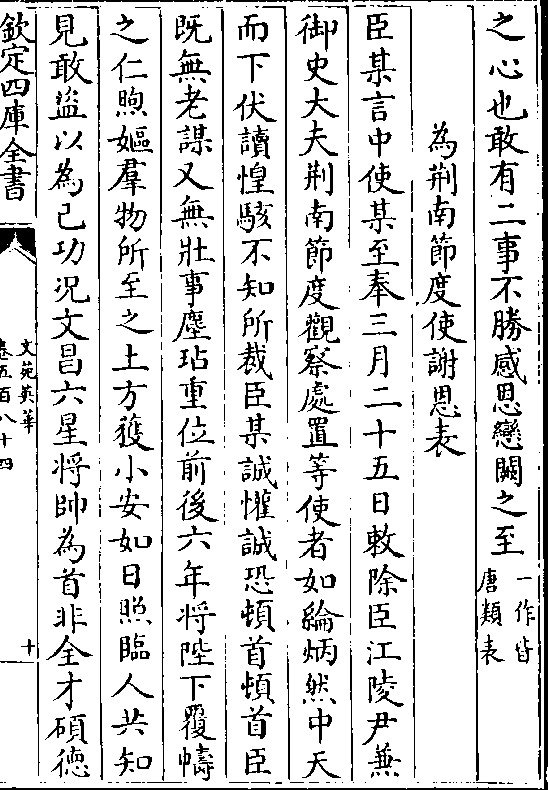 之心也敢有二事不勝感恩戀闕之至一作皆
唐類表
為荆南節度使謝恩表
臣某言中使某至奉三月二十五日敕除臣江陵尹兼
御史大夫荆南節度觀察處置等使者如綸炳然中天
而下伏讀惶駭不知所裁臣某誠懽誠恐頓首頓首臣
既無老謀又無壯事塵玷重位前後六年將陛下覆幬
之仁煦嫗羣物所至之土方獲小安如日照臨人共知
見敢盜以為己功况文昌六星將帥為首非全才碩德
欽定四庫全書
文苑英華
卷五百八十四
十